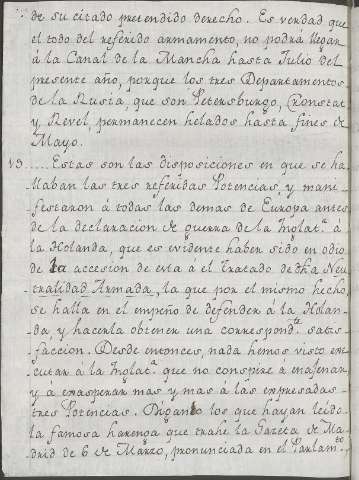 de su citado pretendido derecho. Es verdad que
el todo del referido armamento, no podrá llegar
á la Canal de la Mancha hasta Julio del
presente año, porque los tres Departamentos
de la Rusia, que son Petersburgo, Cronstat
y Revel, permanecen helados hasta fines de
Mayo.
13.....Estas son las disposiciones en que se ha
llaban las tres referidas Potencias, y mani
festaron á todas las demas de Europa antes
de la declaracion de guerra de la Inglat.ª á
la Holanda, que es evidente haber sido en odio
de la accesion de esta á el Tratado de dha Neu
tralidad Armada, la que por el mismo hecho,
se halla en el empeño de defender á la Holan
da y hacerla obtener una correspond.te satis
faccion. Desde entonces, nada hemos visto exe
cutar á la Inglat.ª que no conspire á enajenar
y á exasperar mas y mas á las expresadas
tres Potencias. Diganlo los que hayan leido
la famosa harenga que trahe la Gazeta de Ma
drid de 6 de Marzo, pronunciada en el Parlam.to